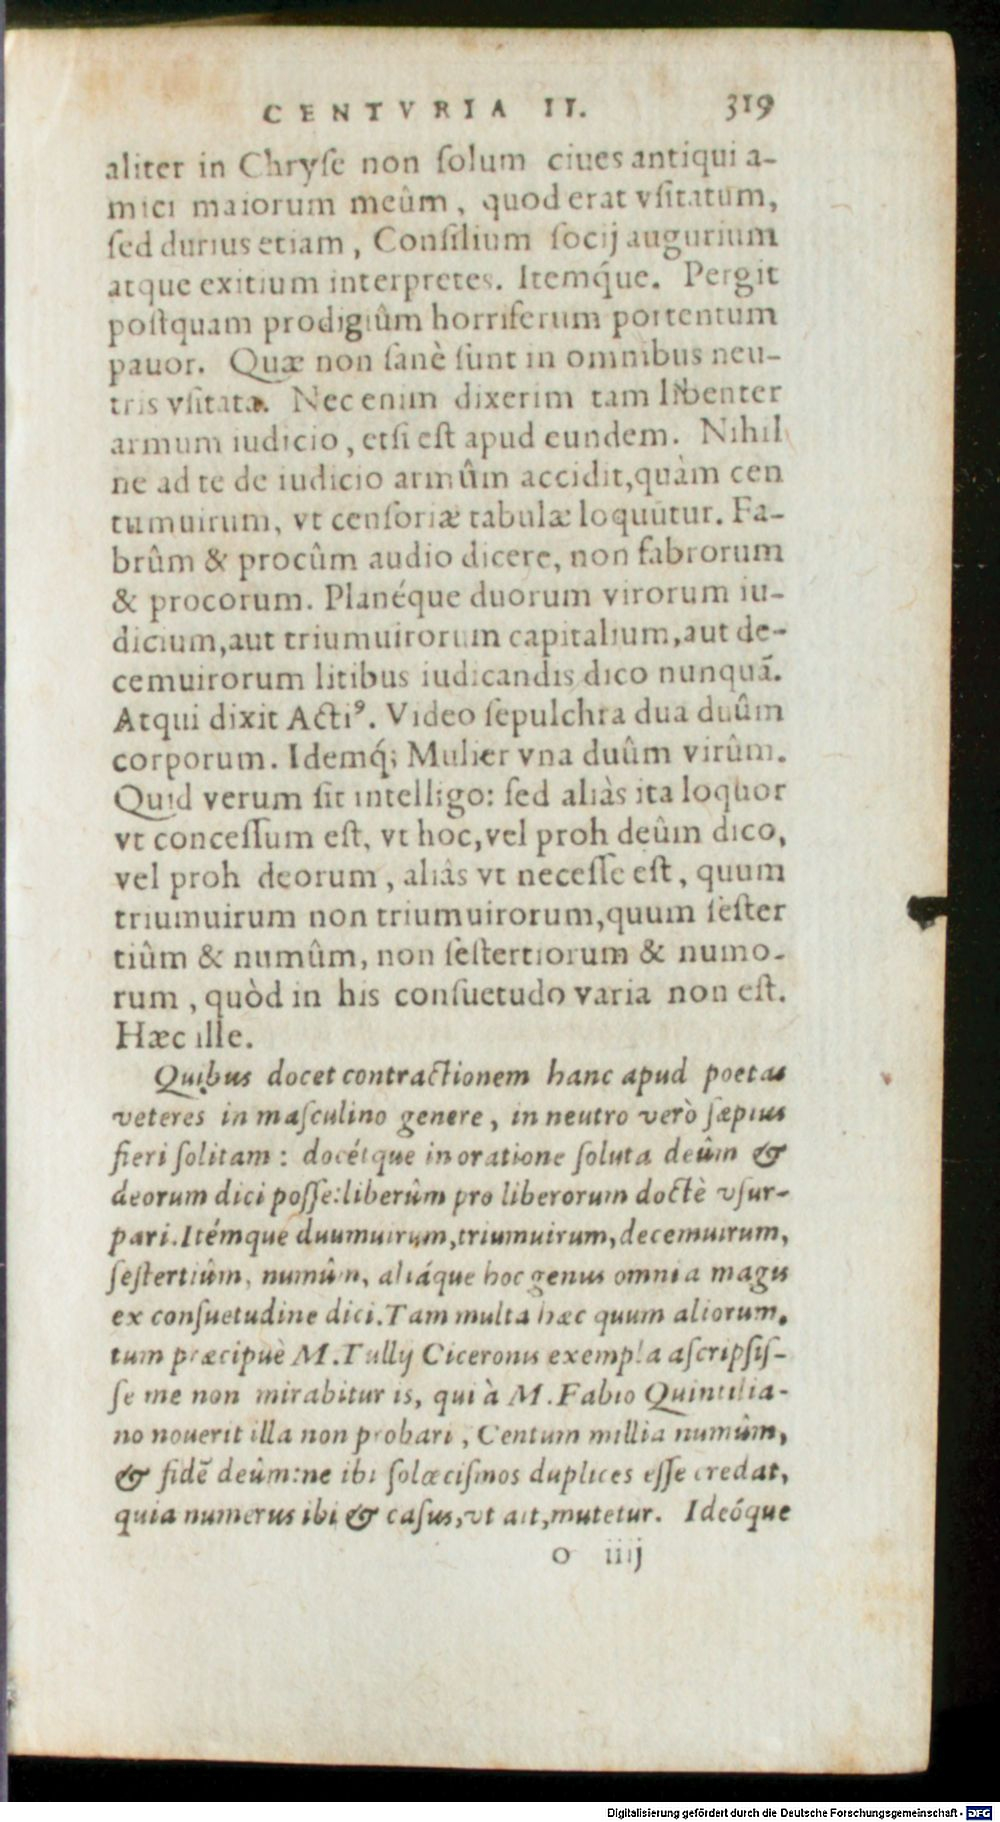 CENTVRIA II. 319
aliter in Chryse non ſolum ciues antiqui a-
mici maiorum meûm, quod erat vſitatum,
ſed durius etiam, Conſilium ſocij augurium
atque exitium interpretes. Itemq́ue. Pergit
poſtquam prodigiûm horriferum portentum
pauor. Quæ non ſanè ſunt in omnibus neu-
tris vſitata. Nec enim dixerim tam libenter
armum iudicio, etſi eſt apud eundem. Nihil
ne ad te de iudicio armûm accidit, quàm cen
tumuirum, vt cenſoriæ tabulæ loquūtur. Fa-
brûm & procûm audio dicere, non fabrorum
& procorum. Planéque duorum virorum iu-
dicium, aut triumuirorum capitalium, aut de-
cemuirorum litibus iudicandis dico nunquā.
Atqui dixit Actiꝰ. Video ſepulchra dua duûm
corporum. Idemq́; Mulier vna duûm virûm.
Quid verum ſit intelligo: ſed aliàs ita loquor
vt conceſſum eſt, vt hoc, vel proh deûm dico,
vel proh deorum, aliàs vt neceſſe eſt, quum
triumuirum non triumuirorum, quum ſeſter
tiûm & numûm, non ſeſtertiorum & numo-
rum, quòd in his conſuetudo varia non eſt.
Hæc ille.
Quibus docet contractionem hanc apud poetas
veteres in maſculino genere, in neutro verò ſæpius
fieri ſolitam: docétque in oratione ſoluta deûm &
deorum dici poſſe: liberûm pro liberorum doctè vſur-
pari. Itémque duumuirum, triumuirum, decemuirum,
ſeſtertiûm, numûm, aliáque hoc genus omnia magis
ex conſuetudine dici. Tam multa hæc quum aliorum,
tum præcipuè M. Tullij Ciceronis exempla aſcripſiſ-
ſe me non mirabitur is, qui à M. Fabio Quintilia-
no nouerit illa non probari, Centum millia numûm,
& fidē deûm: ne ibi ſolœciſmos duplices eſſe credat,
quia numerus ibi & caſus, vt ait, mutetur. Ideóque
o iiij
Digitalisierung gefördert durch die Deutsche Forschungsgemeinschaft - DFG